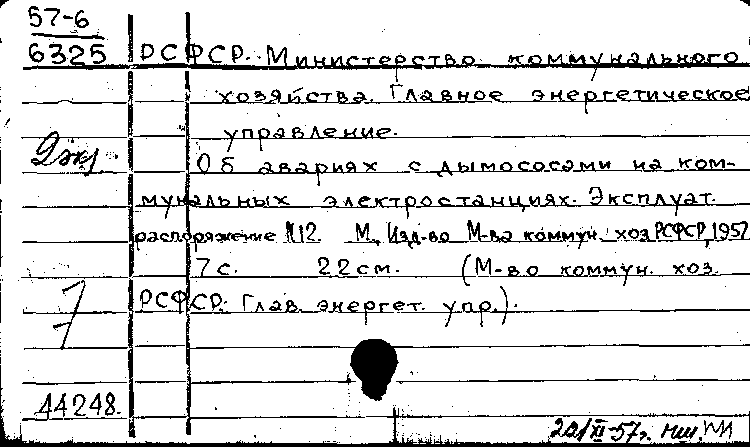 57-6
6325
РСФСР. Министерство коммунального
хозяйства. Главное энергетическое
управление.
2 экз.
Об авариях с дымососами на ком-
мунальных электростанциях. Эксплуат.
распоряжение №12. М., Изд-во М-ва коммун. хоз. РСФСР, 1957
7 с. 22 см. (М-во коммун. хоз.
РСФСР. Глав. энергет. упр.).
7
44248.
57г.